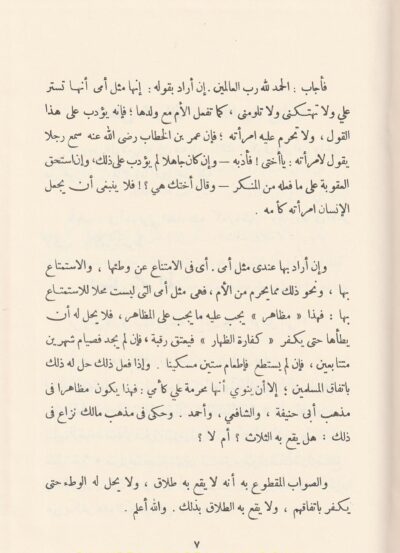 فأجاب : الحمد لله رب العالمين . إن أراد بقوله : إنها مثل أمى أنها تستر
علي ولا تهتكنى ولا تلومنى ، كما تفعل الأم مع ولدها ؛ فإنه يؤدب على هذا
القول ، ولا تحرم عليه امرأته ؛ فإن عمر بن الخطاب رضى الله عنه سمع رجلا
يقول لامرأته : يا أختى ! فأدبه — وإن كان جاهلا لم يؤدب على ذلك ، وإن استحق
العقوبة على ما فعله من المنكر — وقال أختك هي ؟ ! فلا ينبغى أن يجعل
الإنسان امرأته كأمه .
وإن أراد بها عندى مثل أمى . أى فى الامتناع عن وطئها ، والاستمتاع
بها ، ونحو ذلك مما يحرم من الأم ، فهى مثل أمى التى ليست محلا للاستمتاع
بها : فهذا « مظاهر » يجب عليه ما يجب على المظاهر ، فلا يحل له أن
يطأها حتى يكفر « كفارة الظهار » فيعتق رقبة ، فإن لم يجد فصيام شهرين
متتابعين ، فإن لم يستطع فإطعام ستين مسكينا . وإذا فعل ذلك حل له ذلك
باتفاق المسلمين ؛ إلا أن ينوي أنها محرمة علي كأمي : فهذا يكون مظاهرا فى
مذهب أبى حنيفة ، والشافعي ، وأحمد . وحكى فى مذهب مالك نزاع فى
ذلك : هل يقع به الثلاث ؟ أم لا ؟
والصواب المقطوع به أنه لا يقع به طلاق ، ولا يحل له الوطء حتى
يكفر باتفاقهم ، ولا يقع به الطلاق بذلك . والله أعلم .
٧